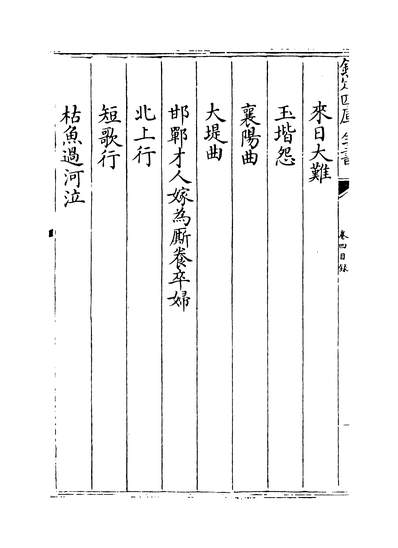 欽定四庫全書
卷四目錄
來日大難
玉堦怨
襄陽曲
大堤曲
邯鄲才人嫁為厮養卒婦
北上行
短歌行
枯魚過河泣